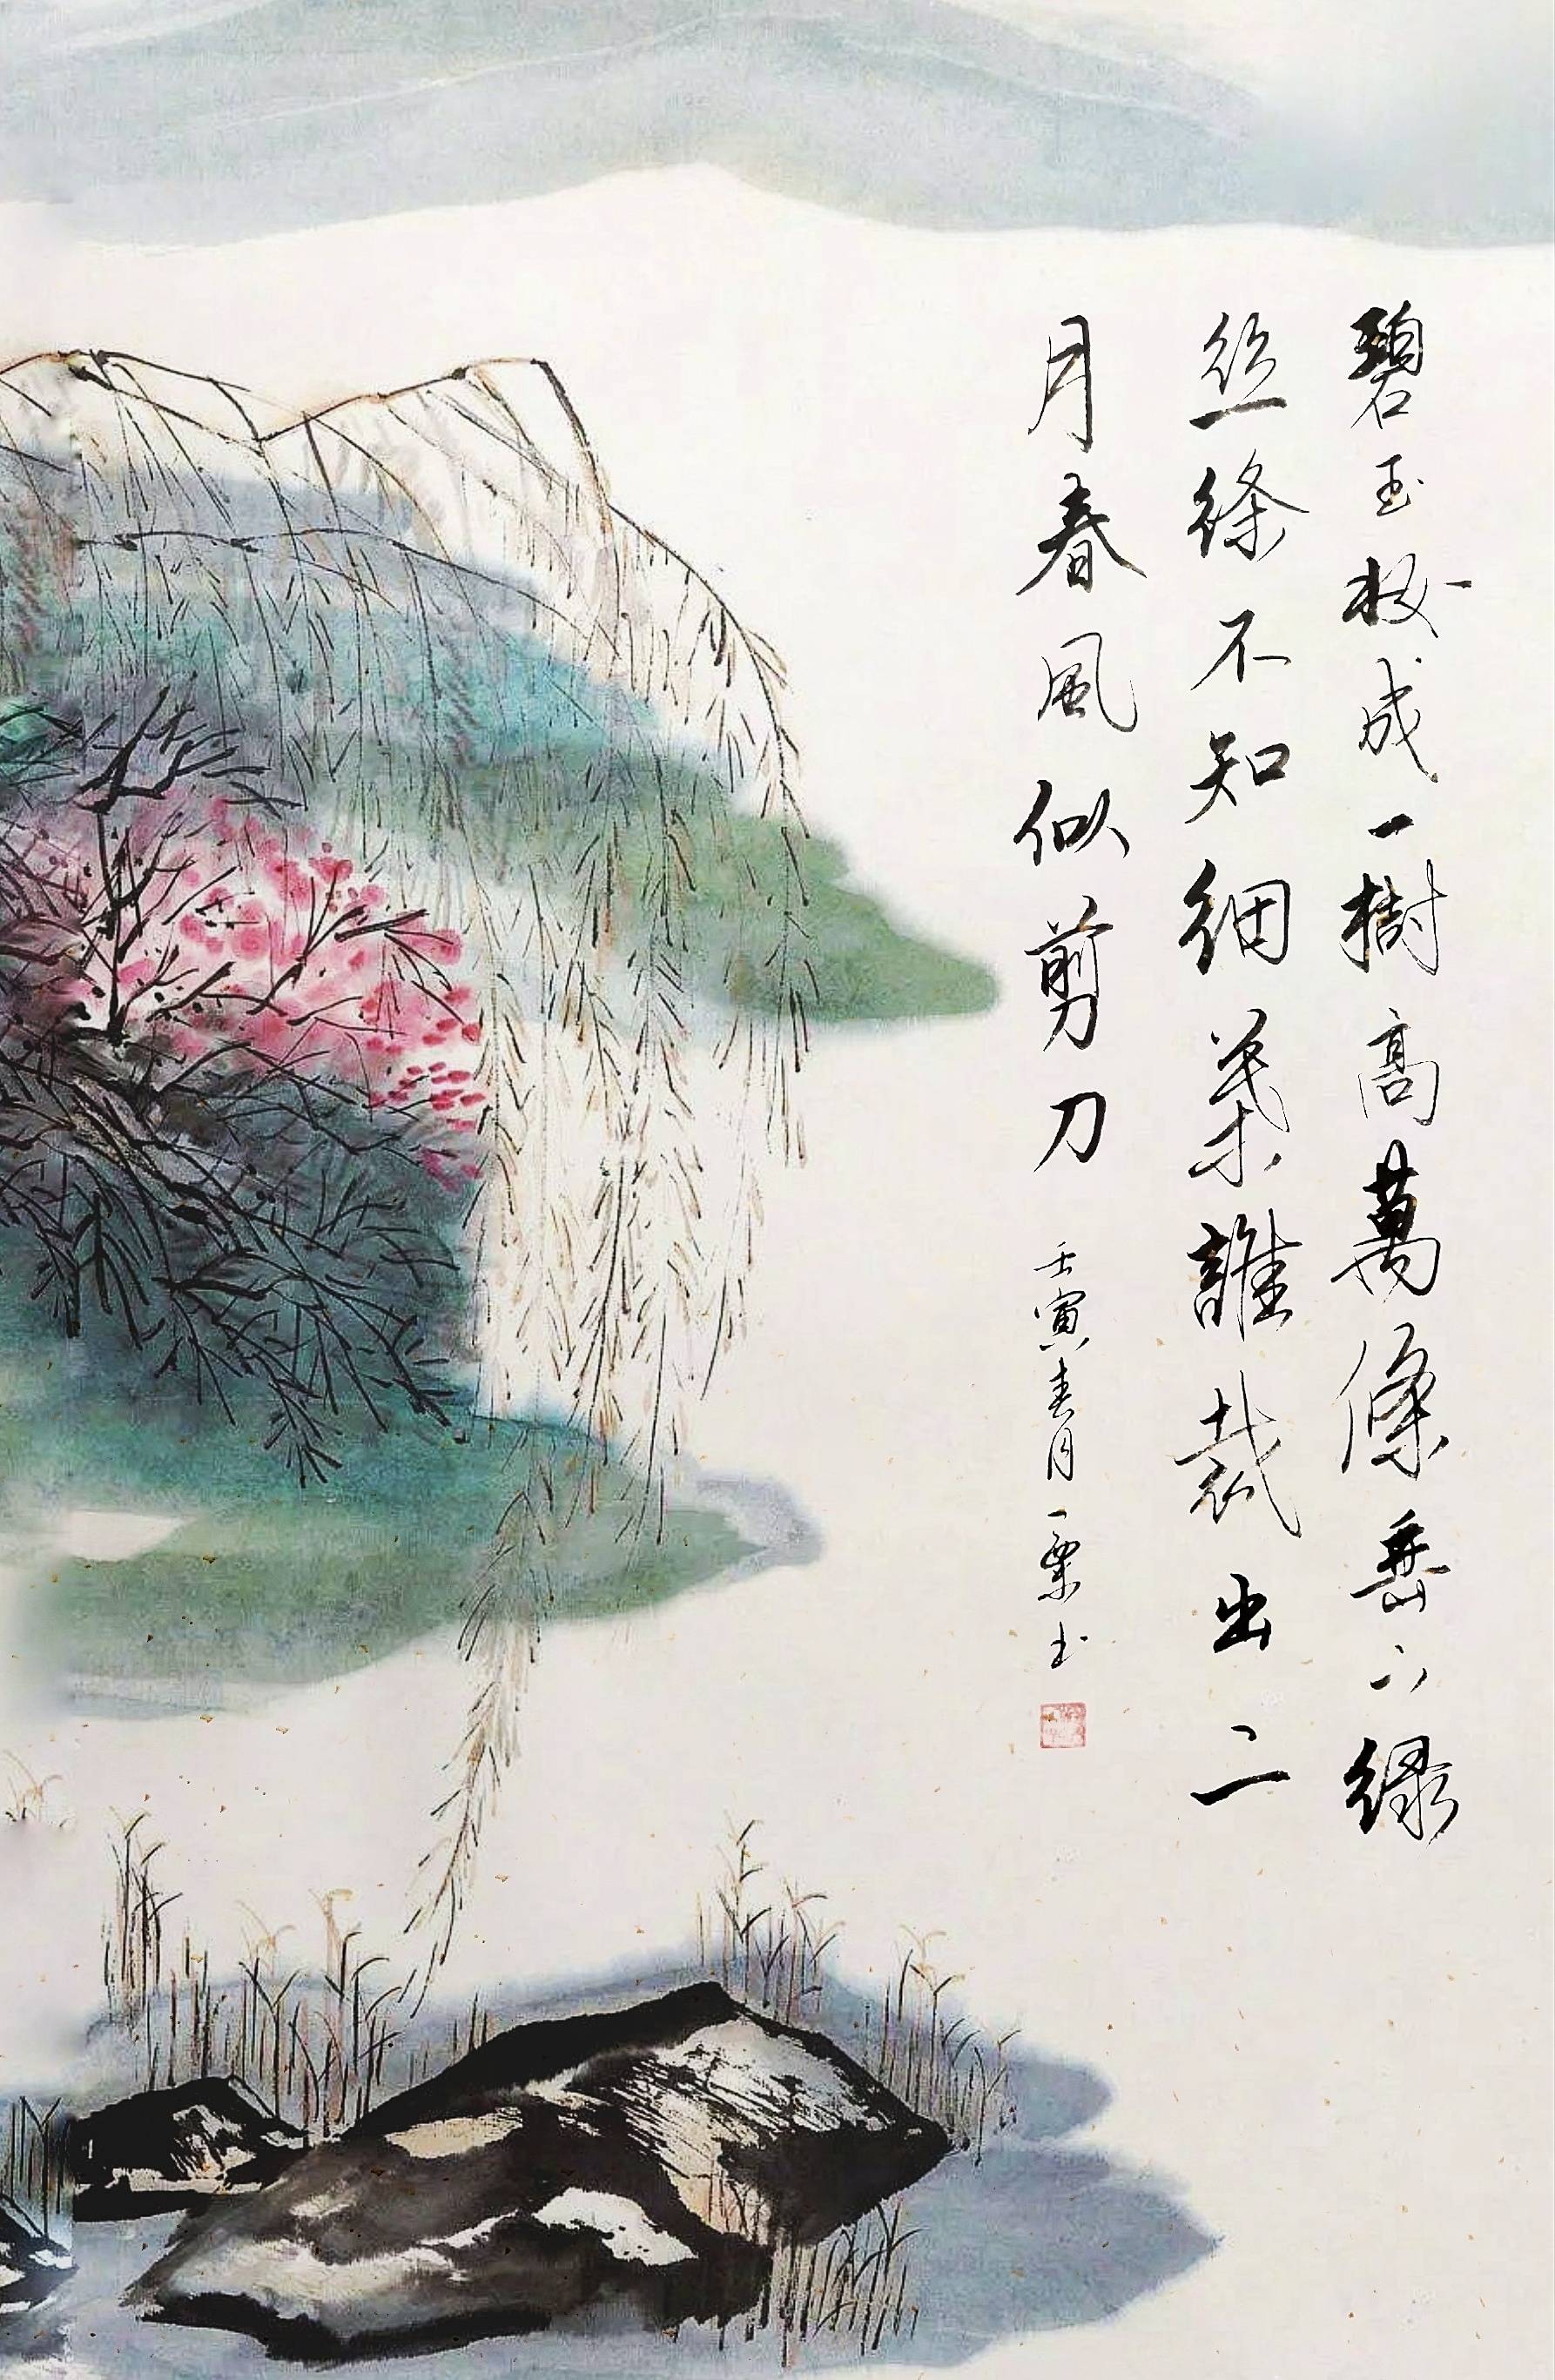 碧玉妝成一樹高萬條垂下綠
丝絛不知细葉誰裁出二
月春風似剪刀
壬寅春月一粟书